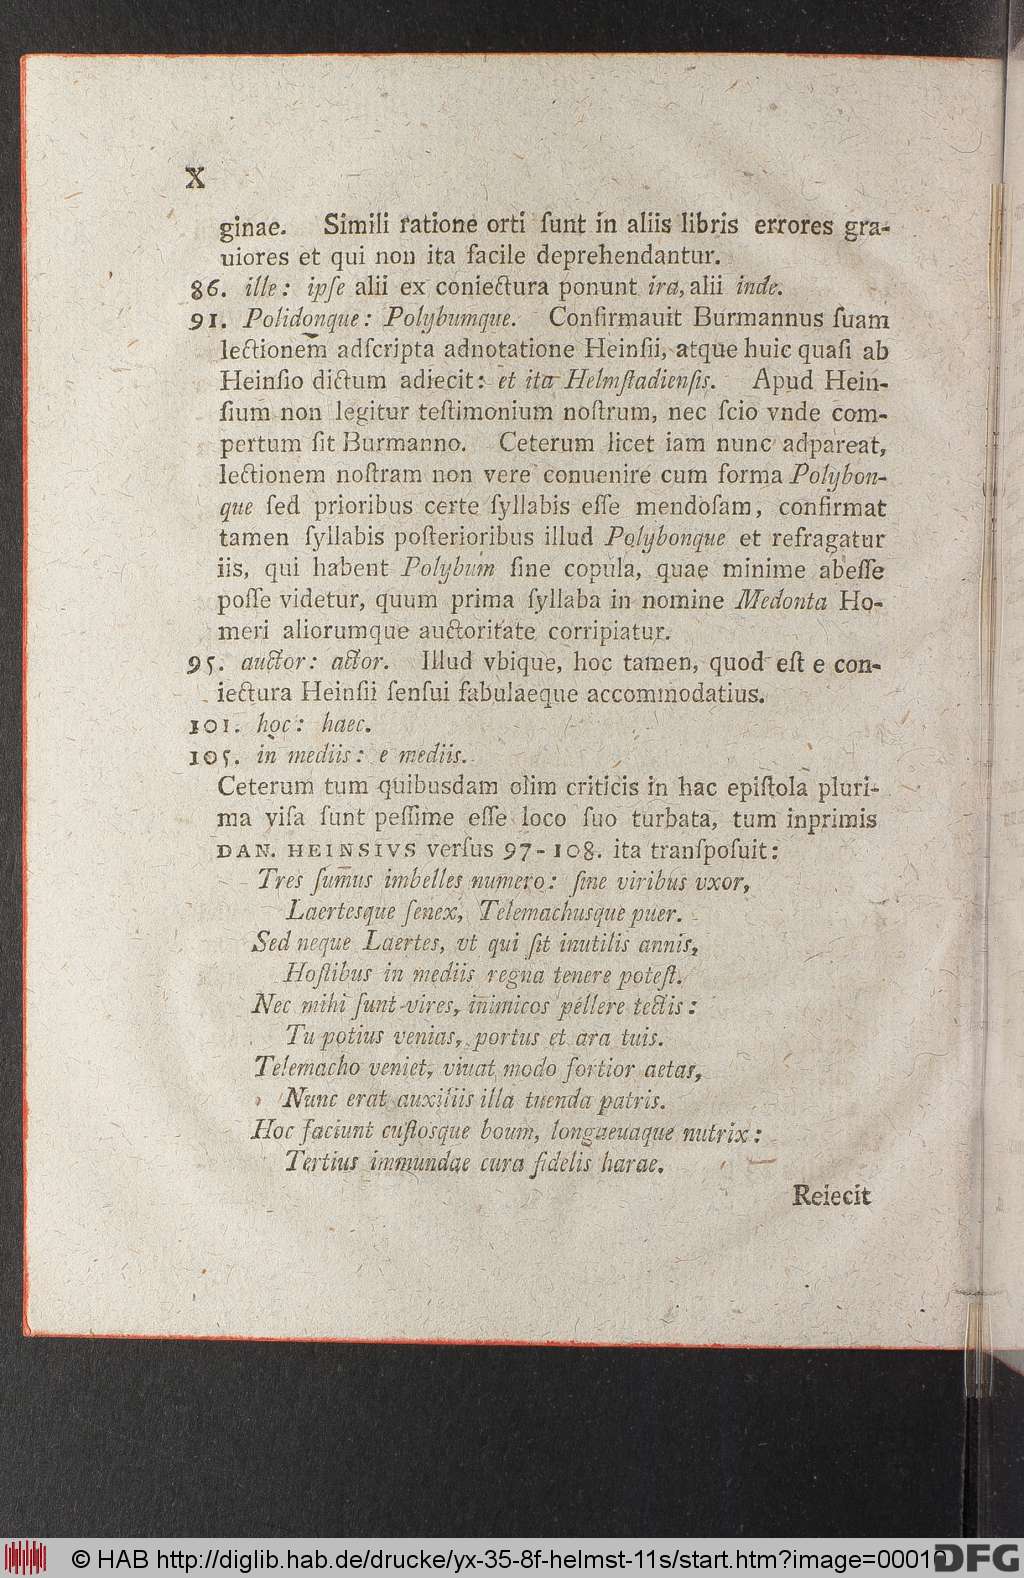 X
ginae. Simili ratione orti ſunt in aliis libris errores gra-
uiores et qui non ita facile deprehendantur.
86. ille: ipſe alii ex coniectura ponunt ira, alii inde.
91. Polidonque: Polybumque. Confirmauit Burmannus ſuam
lectionem adſcripta adnotatione Heinſii, atque huic quaſi ab
Heinſio dictum adiecit: et ita Helmſtadienſis. Apud Hein-
ſium non legitur teſtimonium noſtrum, nec ſcio vnde com-
pertum ſit Burmanno. Ceterum licet iam nunc adpareat,
lectionem noſtram non vere conuenire cum forma Polybon-
que ſed prioribus certe ſyllabis eſſe mendoſam, confirmat
tamen ſyllabis poſterioribus illud Polybonque et refragatur
iis, qui habent Polybum ſine copula, quae minime abeſſe
poſſe videtur, quum prima ſyllaba in nomine Medonta Ho-
meri aliorumque auctoritate corripiatur.
95. auctor: actor. Illud vbique, hoc tamen, quod eſt e con-
iectura Heinſii ſenſui fabulaeque accommodatius.
101. hoc: haec.
105. in mediis: e mediis.
Ceterum tum quibusdam olim criticis in hac epiſtola pluri-
ma viſa ſunt peſſime eſſe loco ſuo turbata, tum inprimis
DAN. HEINSIVS verſus 97-108. ita transpoſuit:
Tres ſumus imbelles numero: ſine viribus vxor,
Laertesque ſenex, Telemachusque puer.
Sed neque Laertes, vt qui ſit inutilis annis,
Hoſtibus in mediis regna tenere poteſt.
Nec mihi ſunt vires, inimicos pellere tectis:
Tu potius venias, portus et ara tuis.
Telemacho veniet, viuat modo fortior aetas,
Nunc erat auxiliis illa tuenda patris.
Hoc faciunt cuſtosque boum, longaeuaque nutrix:
Tertius immundae cura fidelis harae.
Reiecit
© HAB http://diglib.hab.de/drucke/yx-35-8f-helmst-11s/start.htm?image=00010
DFG